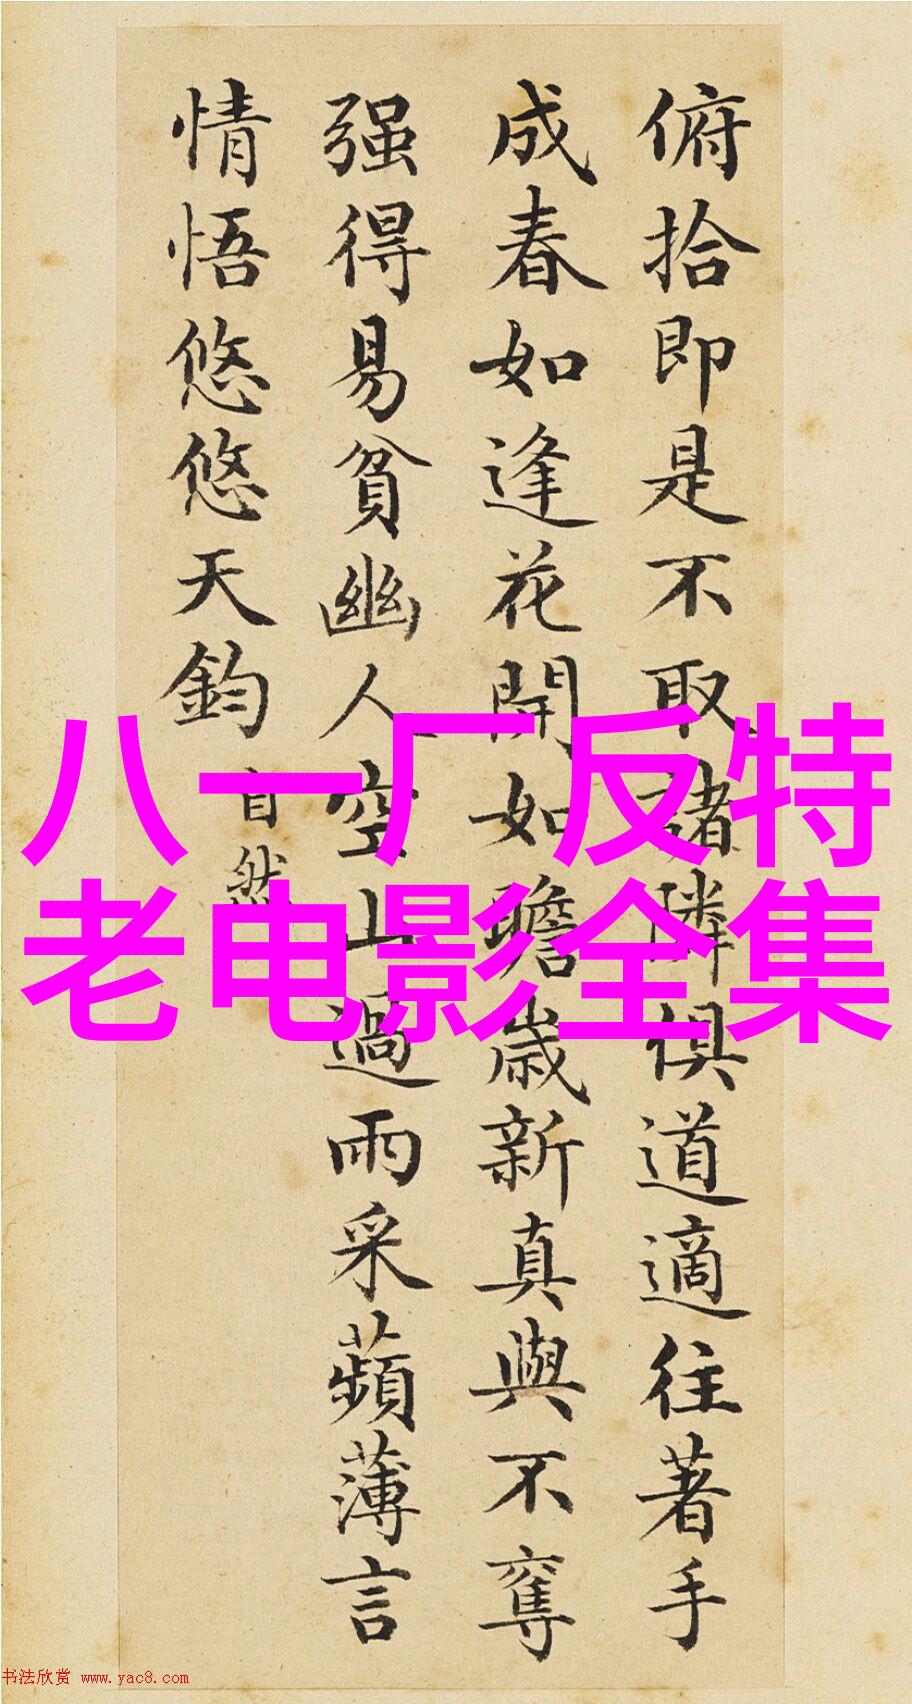 俯拾即是不取諸隣俱道適往著手
成春如逢花開如瞻歲新真與不奪
强得易貧幽人空山過雨采蘋薄言
情悟悠悠天鈞 自然
八一厂反特
老电影全集
书法欣赏 www.yac8.com